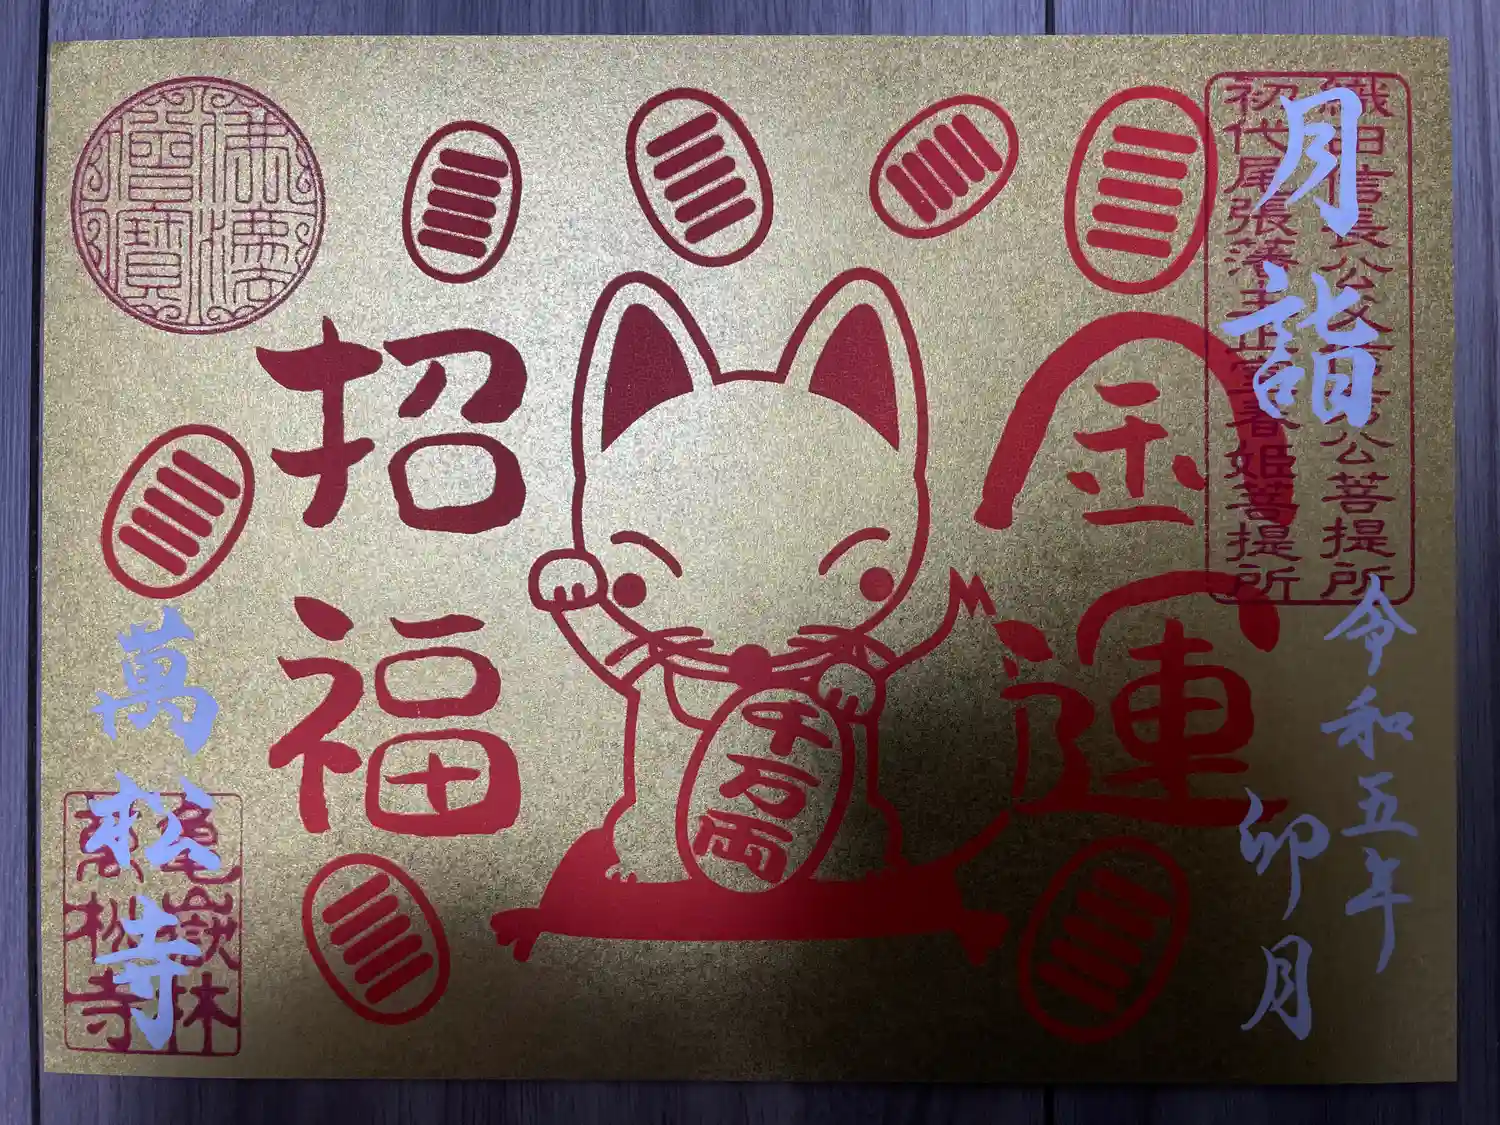 月詣
織田信長公父君信秀公菩提所
初代尾張藩主正室春姫菩提所
令和五年
卯月
金運
招福
千万両
佛法
僧寳
萬松寺
亀嶽林
萬松寺